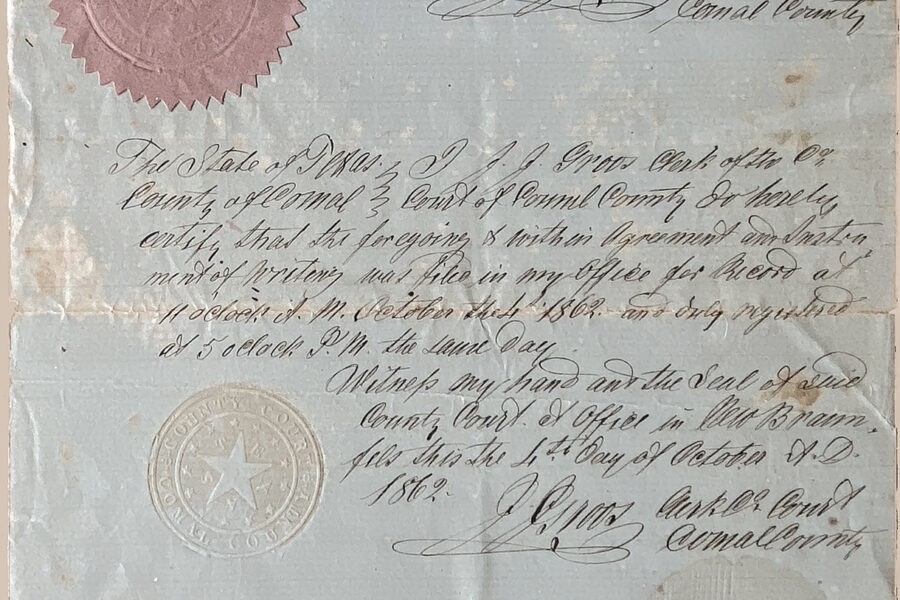 Comal County
The State of Texas } I J. J. Groos Clerk of the Co
County of Comal } Court of Comal County do hereby
certify that the foregoing & within Agreement and Instru
ment of Writing was filed in my Office for Record at
11 o'clock A. M. October the 4th 1862. and duly registered
at 5 oclock P. M. the same day.
Witness my hand and the Seal of said
County Court at Office in New Braun,
fels this the 4th Day of October A. D.
1862.
COUNTY COURT
COMAL COUNTY
J. J. Groos Clerk Co. Court
Comal County